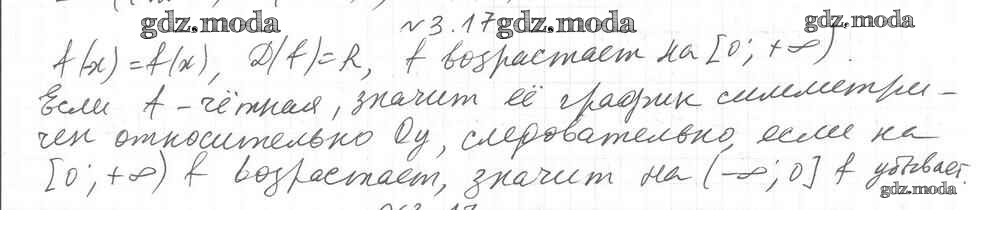 gdz.moda gdz.moda gdz.moda
№3.17
f(-x)=f(x), D(f)=R, f возрастает на [0; +∞).
Если f - чётная, значит её график симметри-
чен относительно Oy, следовательно, если на
[0; +∞) f возрастает, значит на (-∞; 0] f убывает.
gdz.moda